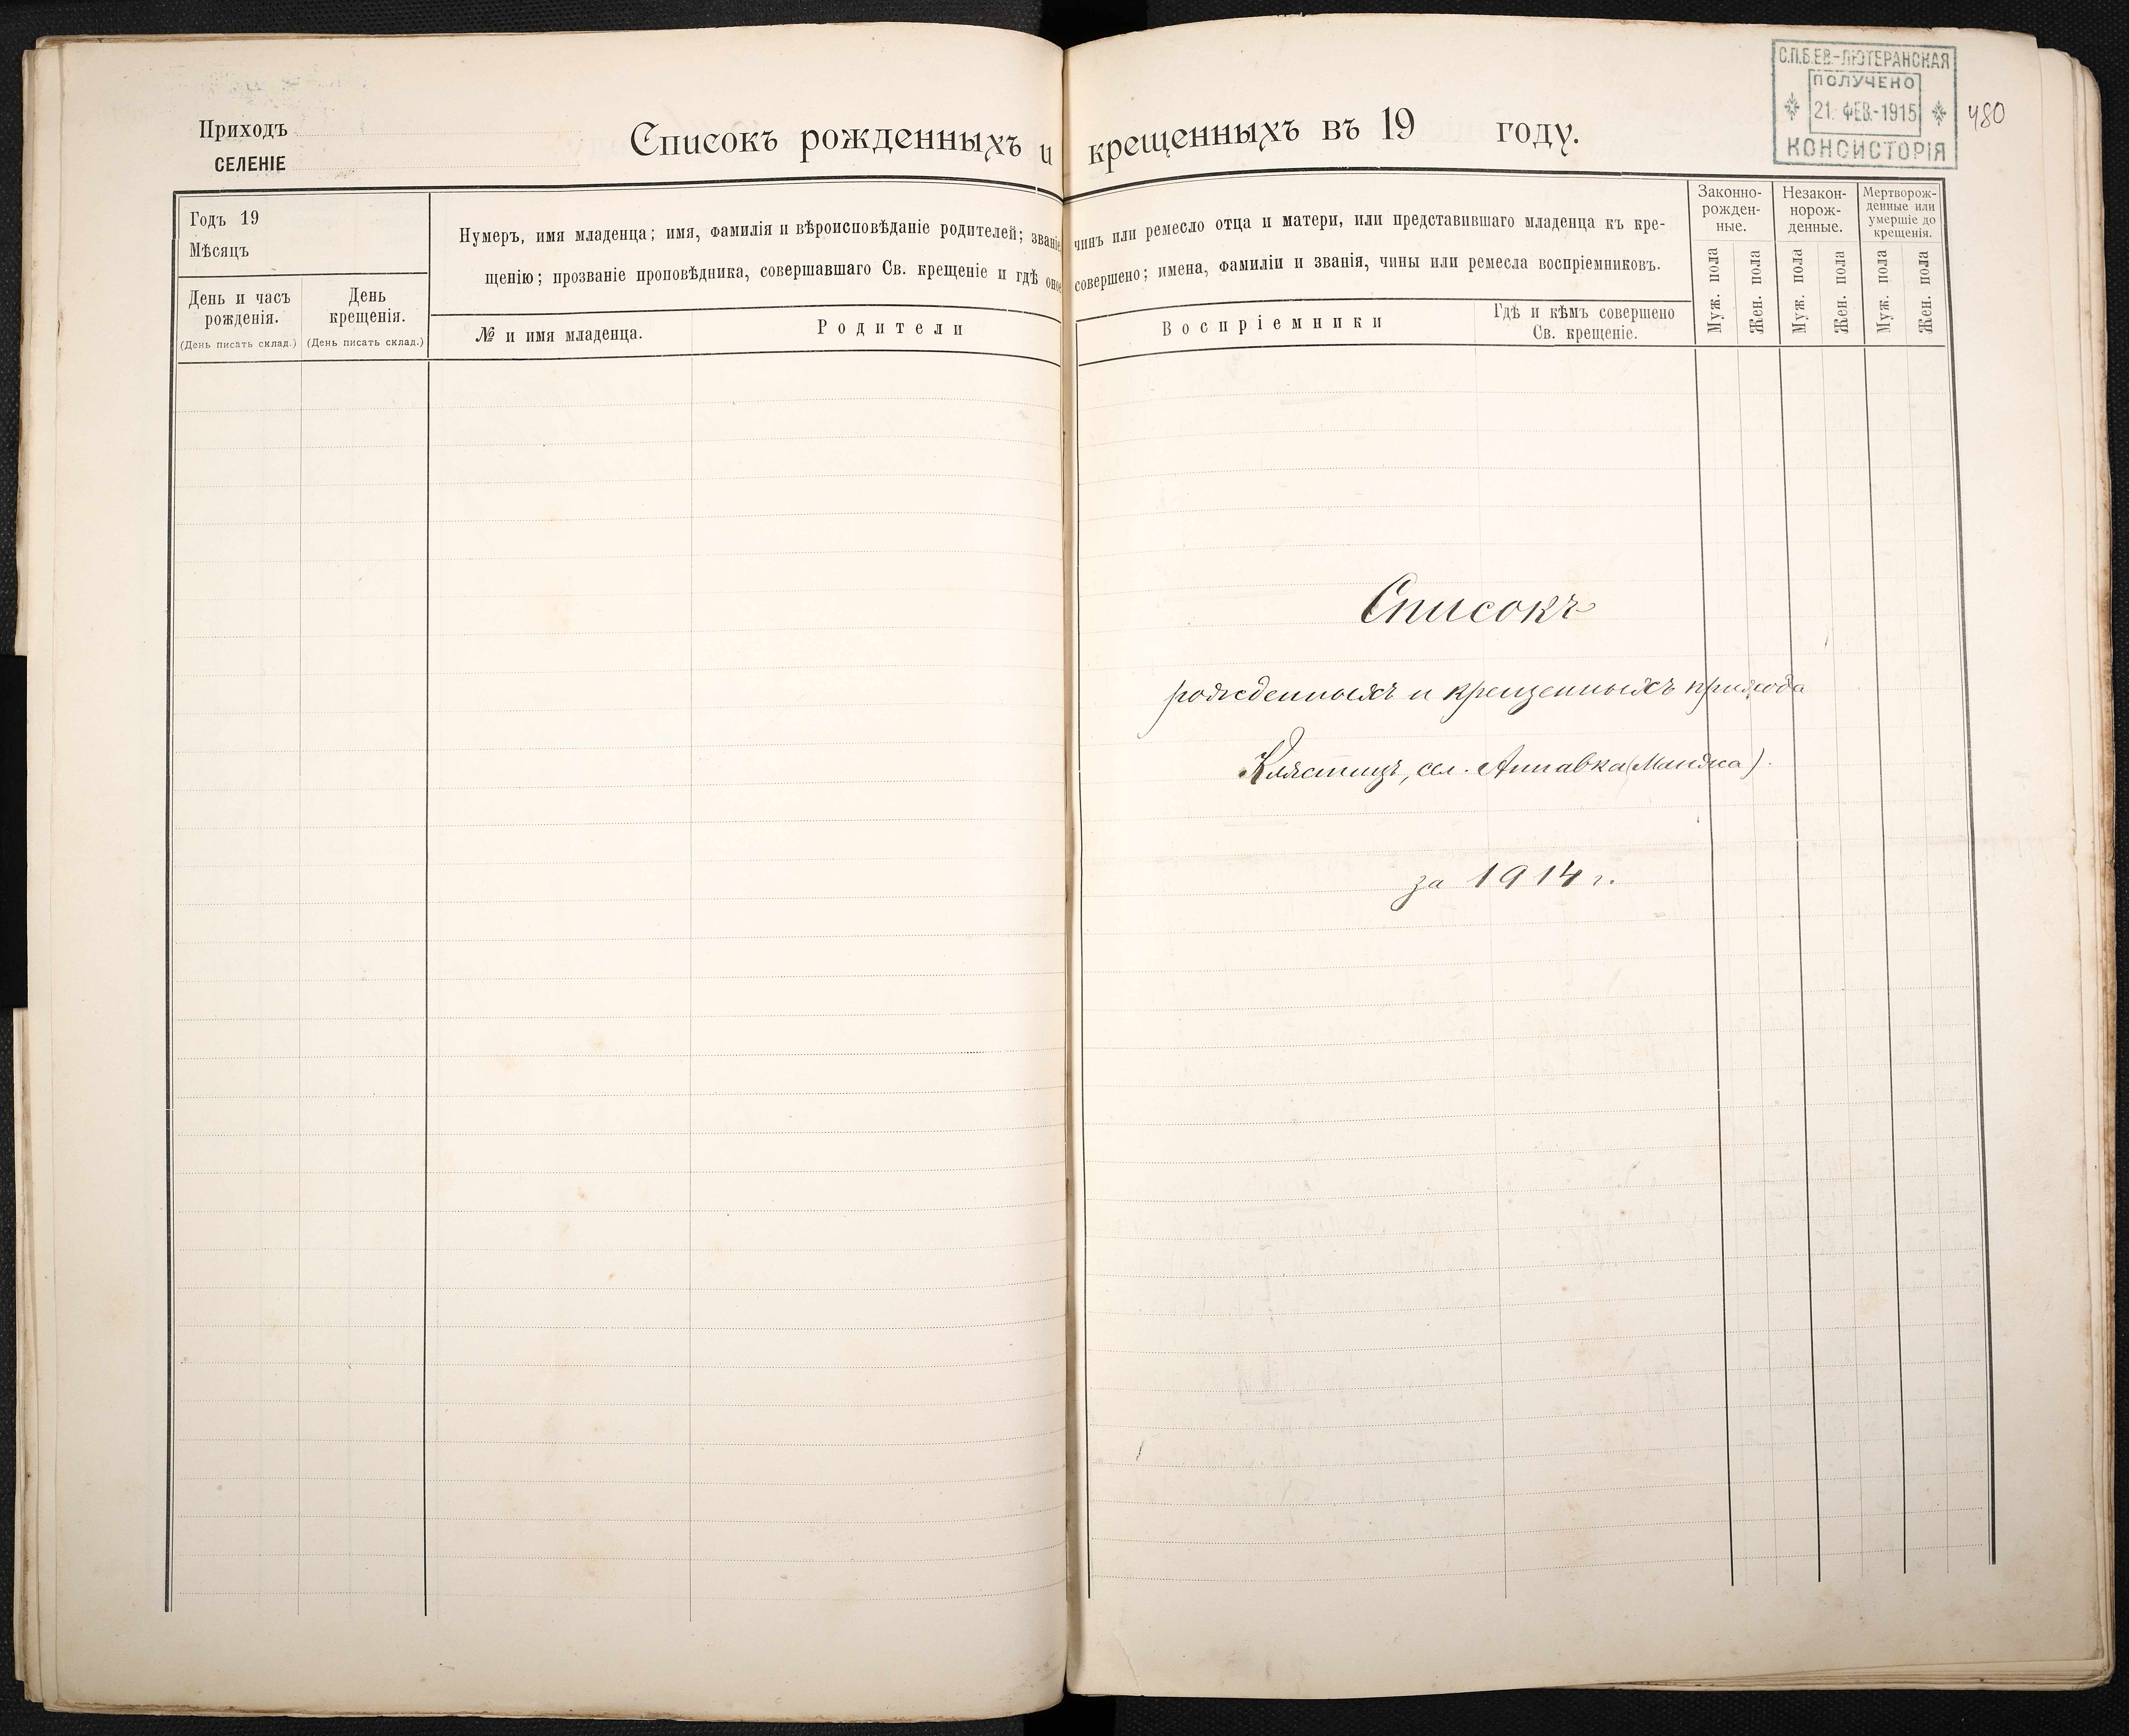 Приходъ
СЕЛЕНІЕ
Списокъ рожденныхъ и крещенныхъ въ 19 году.
С.П.Б.ЕВ.-ЛЮТЕРАНСКАЯ
ПОЛУЧЕНО
21. ФЕВ.-1915
КОНСИСТОРІЯ
480
Годъ 19
Мѣсяцъ
День и часъ
рожденія.
(День писать склад.)
День
крещенія.
(День писать склад.)
Нумеръ, имя младенца; имя, фамилія и вѣроисповѣданіе родителей; званіе, чинъ или ремесло отца и матери, или представившаго младенца къ кре-
щенію; прозваніе проповѣдника, совершавшаго Св. крещеніе и гдѣ оное совершено; имена, фамиліи и званія, чины или ремесла воспріемниковъ.
№ и имя младенца.
Родители
Воспріемники
Гдѣ и кѣмъ совершено
Св. крещеніе.
Законно-
рожден-
ные.
Незакон-
норож-
денные.
Мертворож-
денные или
умершіе до
крещенія.
Муж. пола
Жен. пола
Муж. пола
Жен. пола
Муж. пола
Жен. пола
Списокъ
рожденныхъ и крещенныхъ прихода
Клястицъ, сел. Аннавка (Манжа).
за 1914 г.